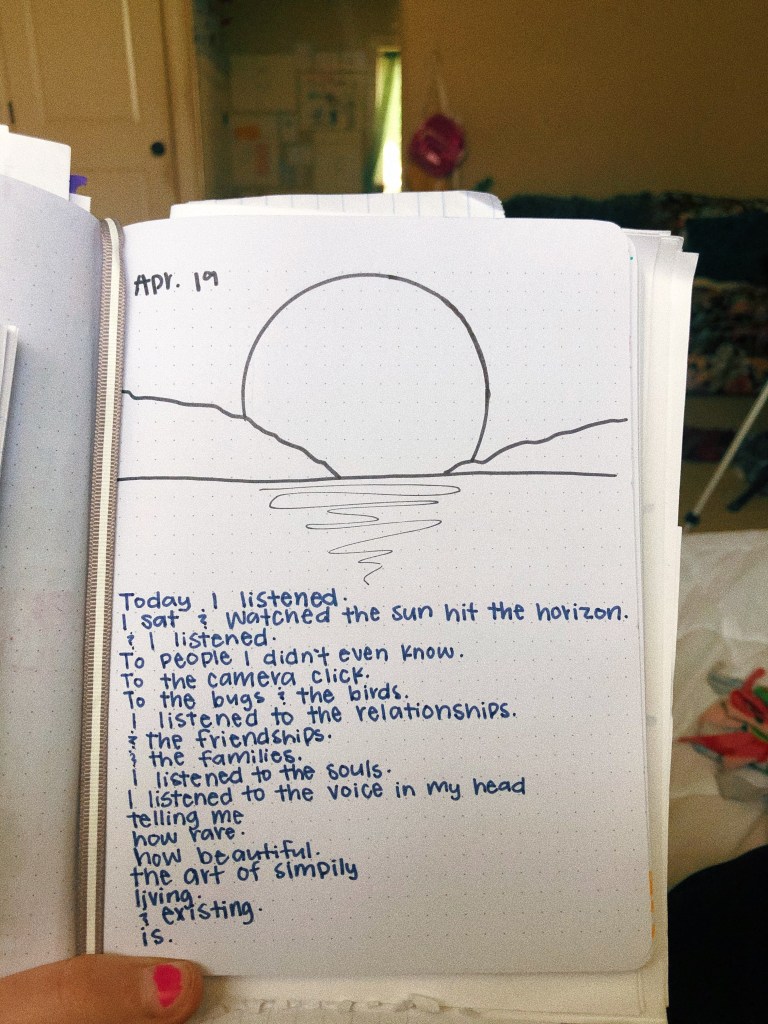 Apr. 19
Today I listened.
I sat & watched the sun hit the horizon.
& I listened.
To people I didn't even know.
To the camera click.
To the bugs & the birds.
I listened to the relationships.
& the friendships.
& the families.
I listened to the souls.
I listened to the voice in my head
telling me
how rare.
how beautiful.
the art of simpily
living.
& existing.
is.